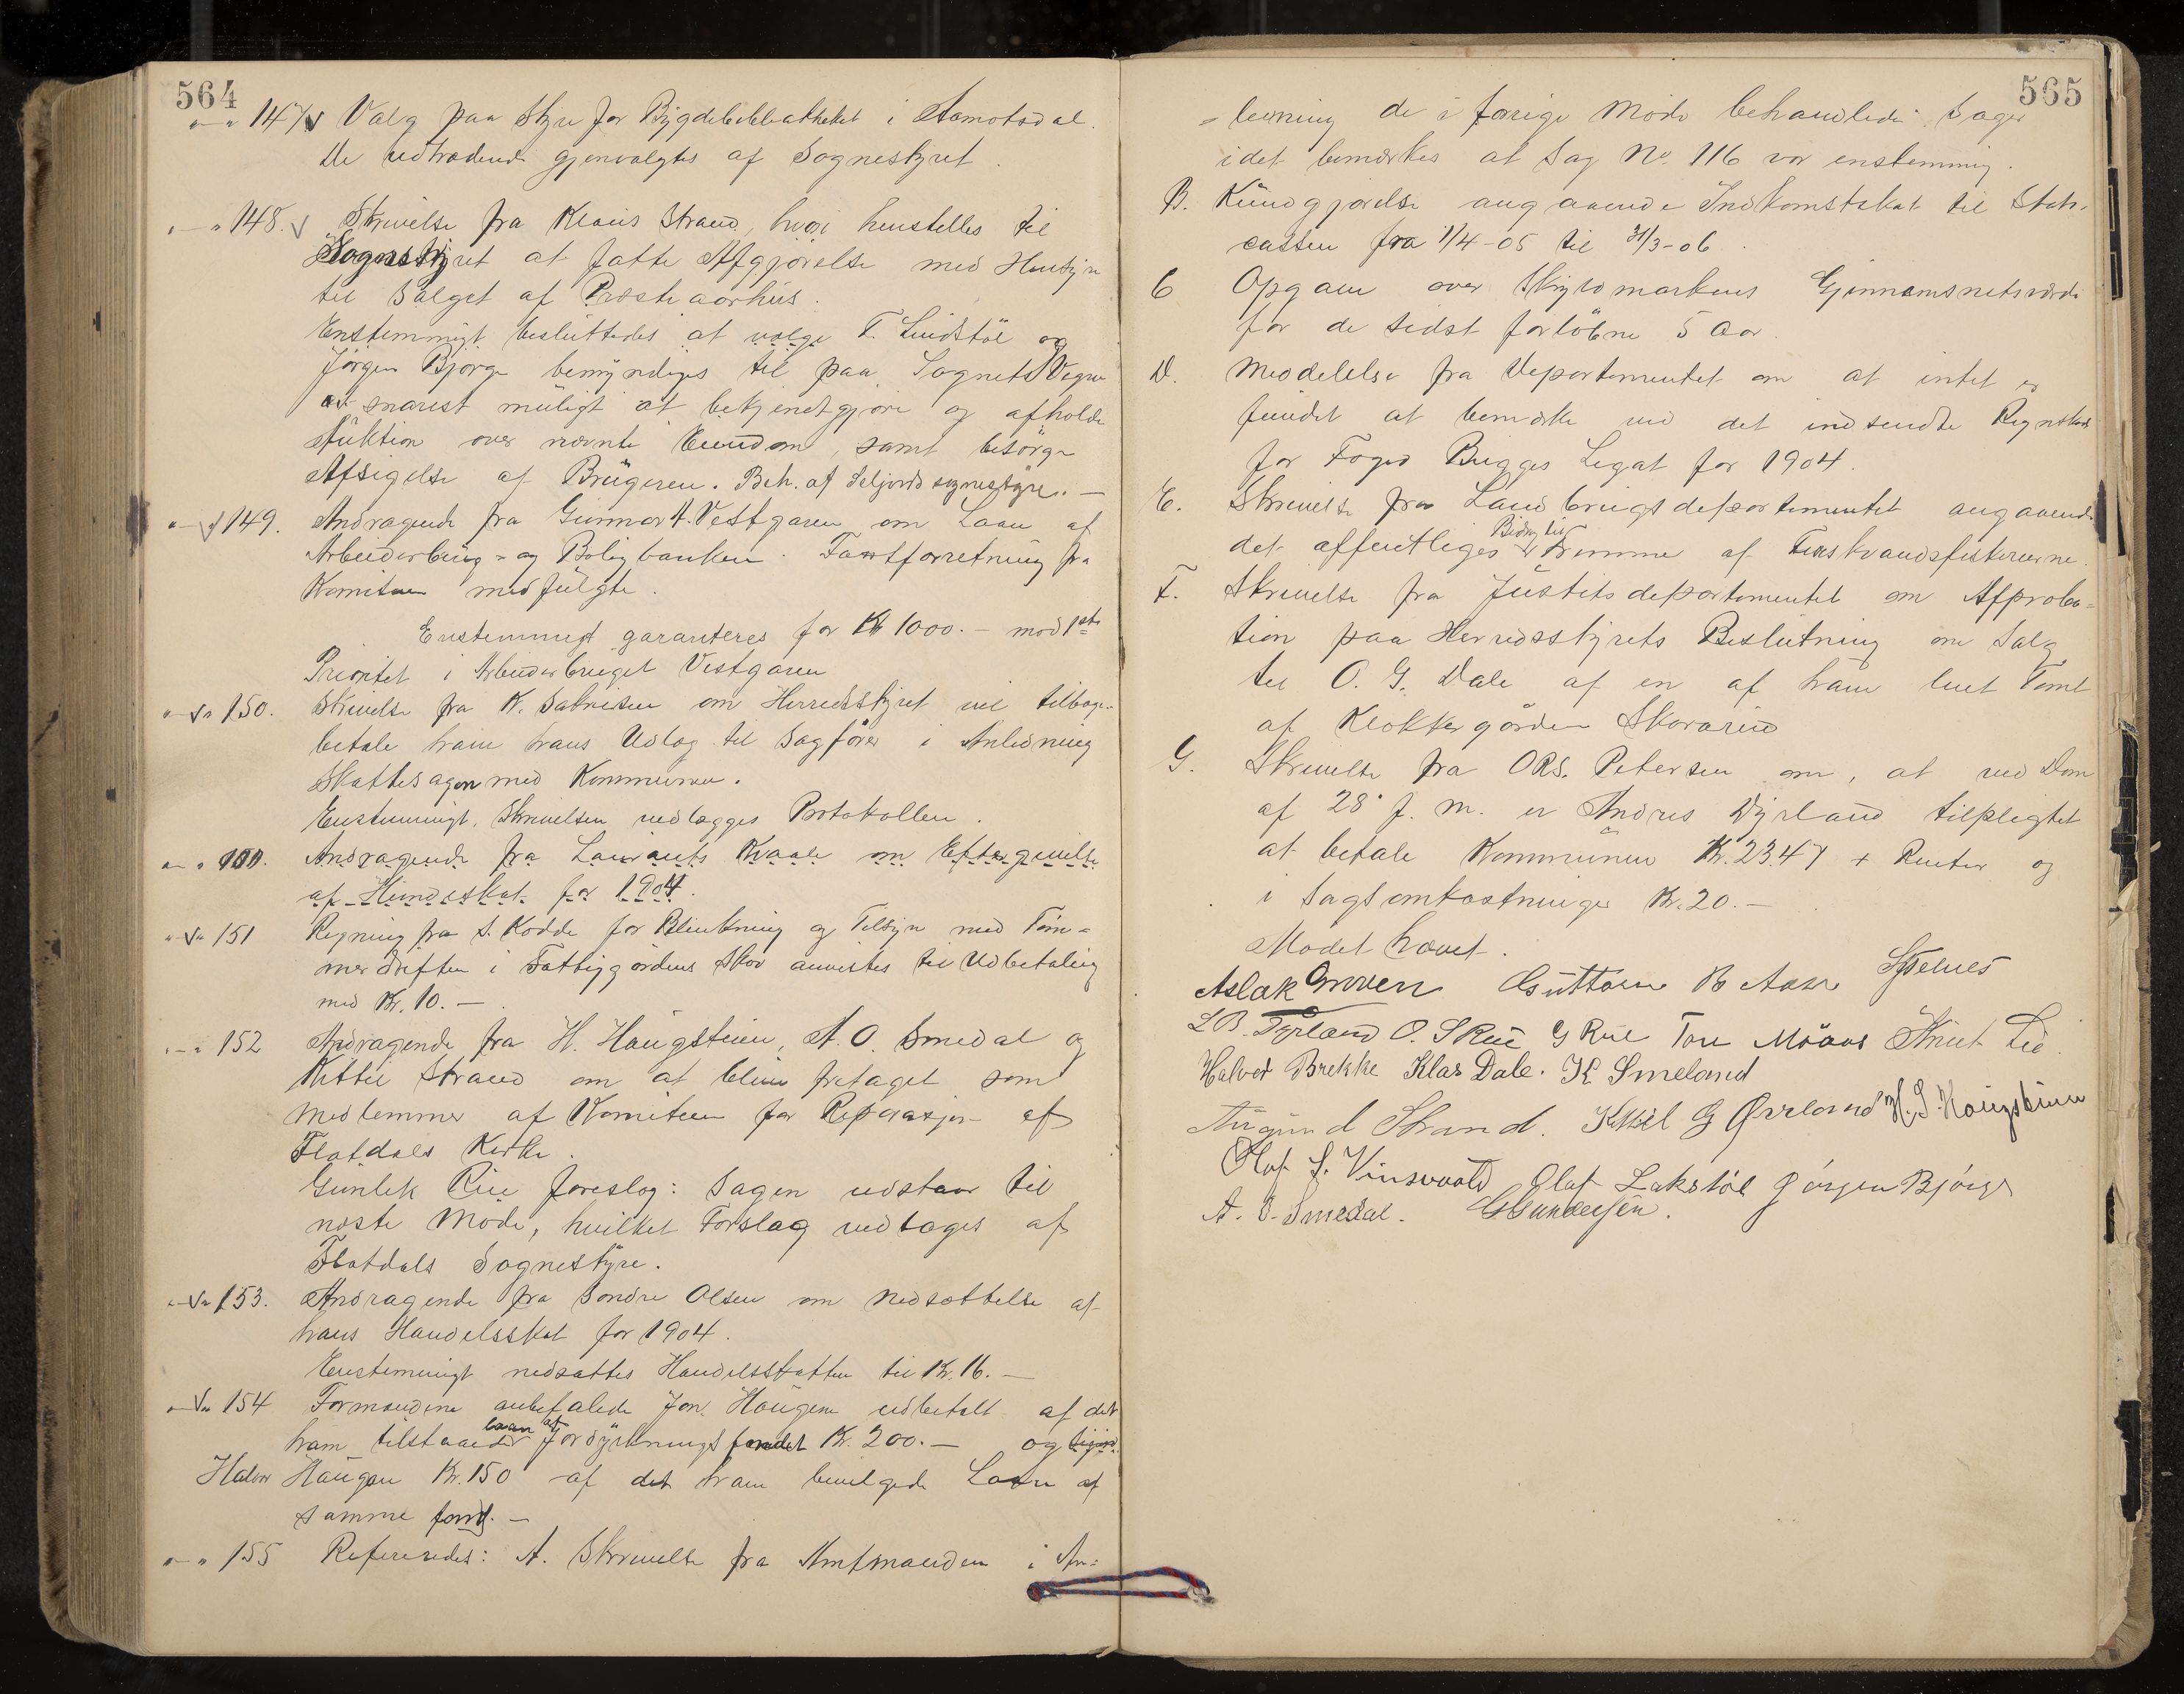 564
" — " 147 √ Valg paa Styre for Bygdebibliotheket i Aamotsdal.
De udtrædende gjenvalgtes af Sognestyret.
" — " 148. √ Skrivelse fra Klaus Strand, hvori henstelles til
Sognestyret at fatte Afgjørelse med Hensyn
til Salget af Præsteaarhus.
Enstemmigt besluttedes at vælge T. Lindstöl og
Jörgen Björge bemyndiges til paa Sognets Vegne
snarest muligt at bekjendtgjøre og afholde
Auktion over nævnte Eiendom, samt besörge
Afsigelse af Brugeren. Beh. af Seljords sognestyre. —
" — √ 149. Andragende fra Gunnar H. Vestgaren om Laan af
Arbeiderbrug- og Boligbanken. Taxtforretning fra
Komiteen medfulgte.
Enstemmigt garanteres for Kr 1000. — mod 1ste
Prioritet i Arbeiderbruget Vestgaren
" √ " 150. Skrivelse fra K. om Herredsstyret vil tilbage-
betale ham hans Udlæg til Sagförer i Anledning
Skattesagen med Kommunen.
Enstemmigt, Skrivelsen vedlægges Protokollen.
" — " Andragende fra Laurants Kvaale om Eftergivelse
af Hundeskat for 1904.
" √ " 151 Regning fra S. Kodde for Blinkning og Tilsyn med Töm-
merdriften i Fattiggårdens Skov anvistes til Udbetaling
med Kr. 10. —
" — " 152 Andragende fra H. Haugstein, A. O. Smedal og
Kittil Strand om at blive fritaget som
Medlemmer af Komiteen for Reparasjon af
Flatdals Kirke.
Gunlek Rue foreslog: Sagen udstaar til
næste Møde, hvilket Forslag vedtoges af
Flatdals Sognestyre.
" √ " 153. Andragende fra Sondre Olsen om Nedsættelse af
hans Handelsskat for 1904.
Enstemmigt nedsattes Handelsskatten til Kr. 16. —
" √ " 154 Formændene anbefalede Jon Haugene udbetalt af det
ham tilstaaede laan af fordyrkningsfondet Kr. 200. — og
Halvor Haugen Kr. 150 af det ham bevilgede Laan af
samme fond. —
" — " 155 Refereredes: A. Skrivelse fra Amtmanden i An-
565
= ledning de i forrige Möde behandlede Sager
idet bemærkes at Sag No. 116 var enstemmig.
B. Kundgjørelse angaaende Indkomstskat til Stats-
cassen fra 1/4-05 til 31/3-06.
C Opgave over Skyldmarkens Gjennemsnitsværdi
for de sidst forløbne 5 Aar
D. Meddelelse fra Departementet om at intet er
fundet at bemærke ved det indsendte Regnskab
for Foged Bugges Legat for 1904.
E. Skrivelse fra Landbrugsdepartementet angaaende
det offentliges Bidrag til Fremme af Ferskvandsfiskerierne.
F. Skrivelse fra Justitsdepartementet om Approba-
tion paa Herredsstyrets Beslutning om Salg
til O. G. Dale af en af ham leiet Tomt
af Klokkergården Skovarud
G. Skrivelse fra ORS. Petersen om, at ved Dom
af 28' f. m. er Andres Dyrland tilpligtet
at betale Kommunen Kr. 23.47 + Renter og
i Sagsomkostninger Kr. 20. —
Mødet hævet.
Aslak Groven Guttorm R Aase
L B. Dyrland O. S Rue G Rue Tore Moaas Knut Lid
Halvor Brekke Klas Dale. K Smeland
Augund Strand. Kittil G Överland H. S. Haugstein
Olaf J. Vinsvaald Olaf Lakstöl Jörgen Björge
A. O. Smedal. G Gundersen.